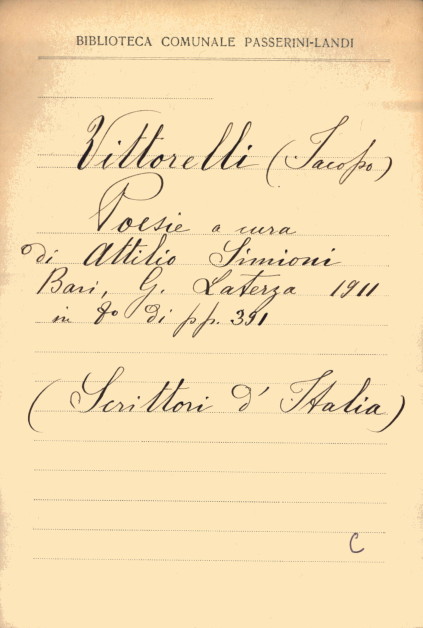 BIBLIOTECA COMUNALE PASSERINI-LANDI
Vittorelli (Jacopo)
Poesie a cura
di Attilio Simioni
Bari, G. Laterza 1911
in 8º di pp. 391
(Scrittori d' Italia)
C